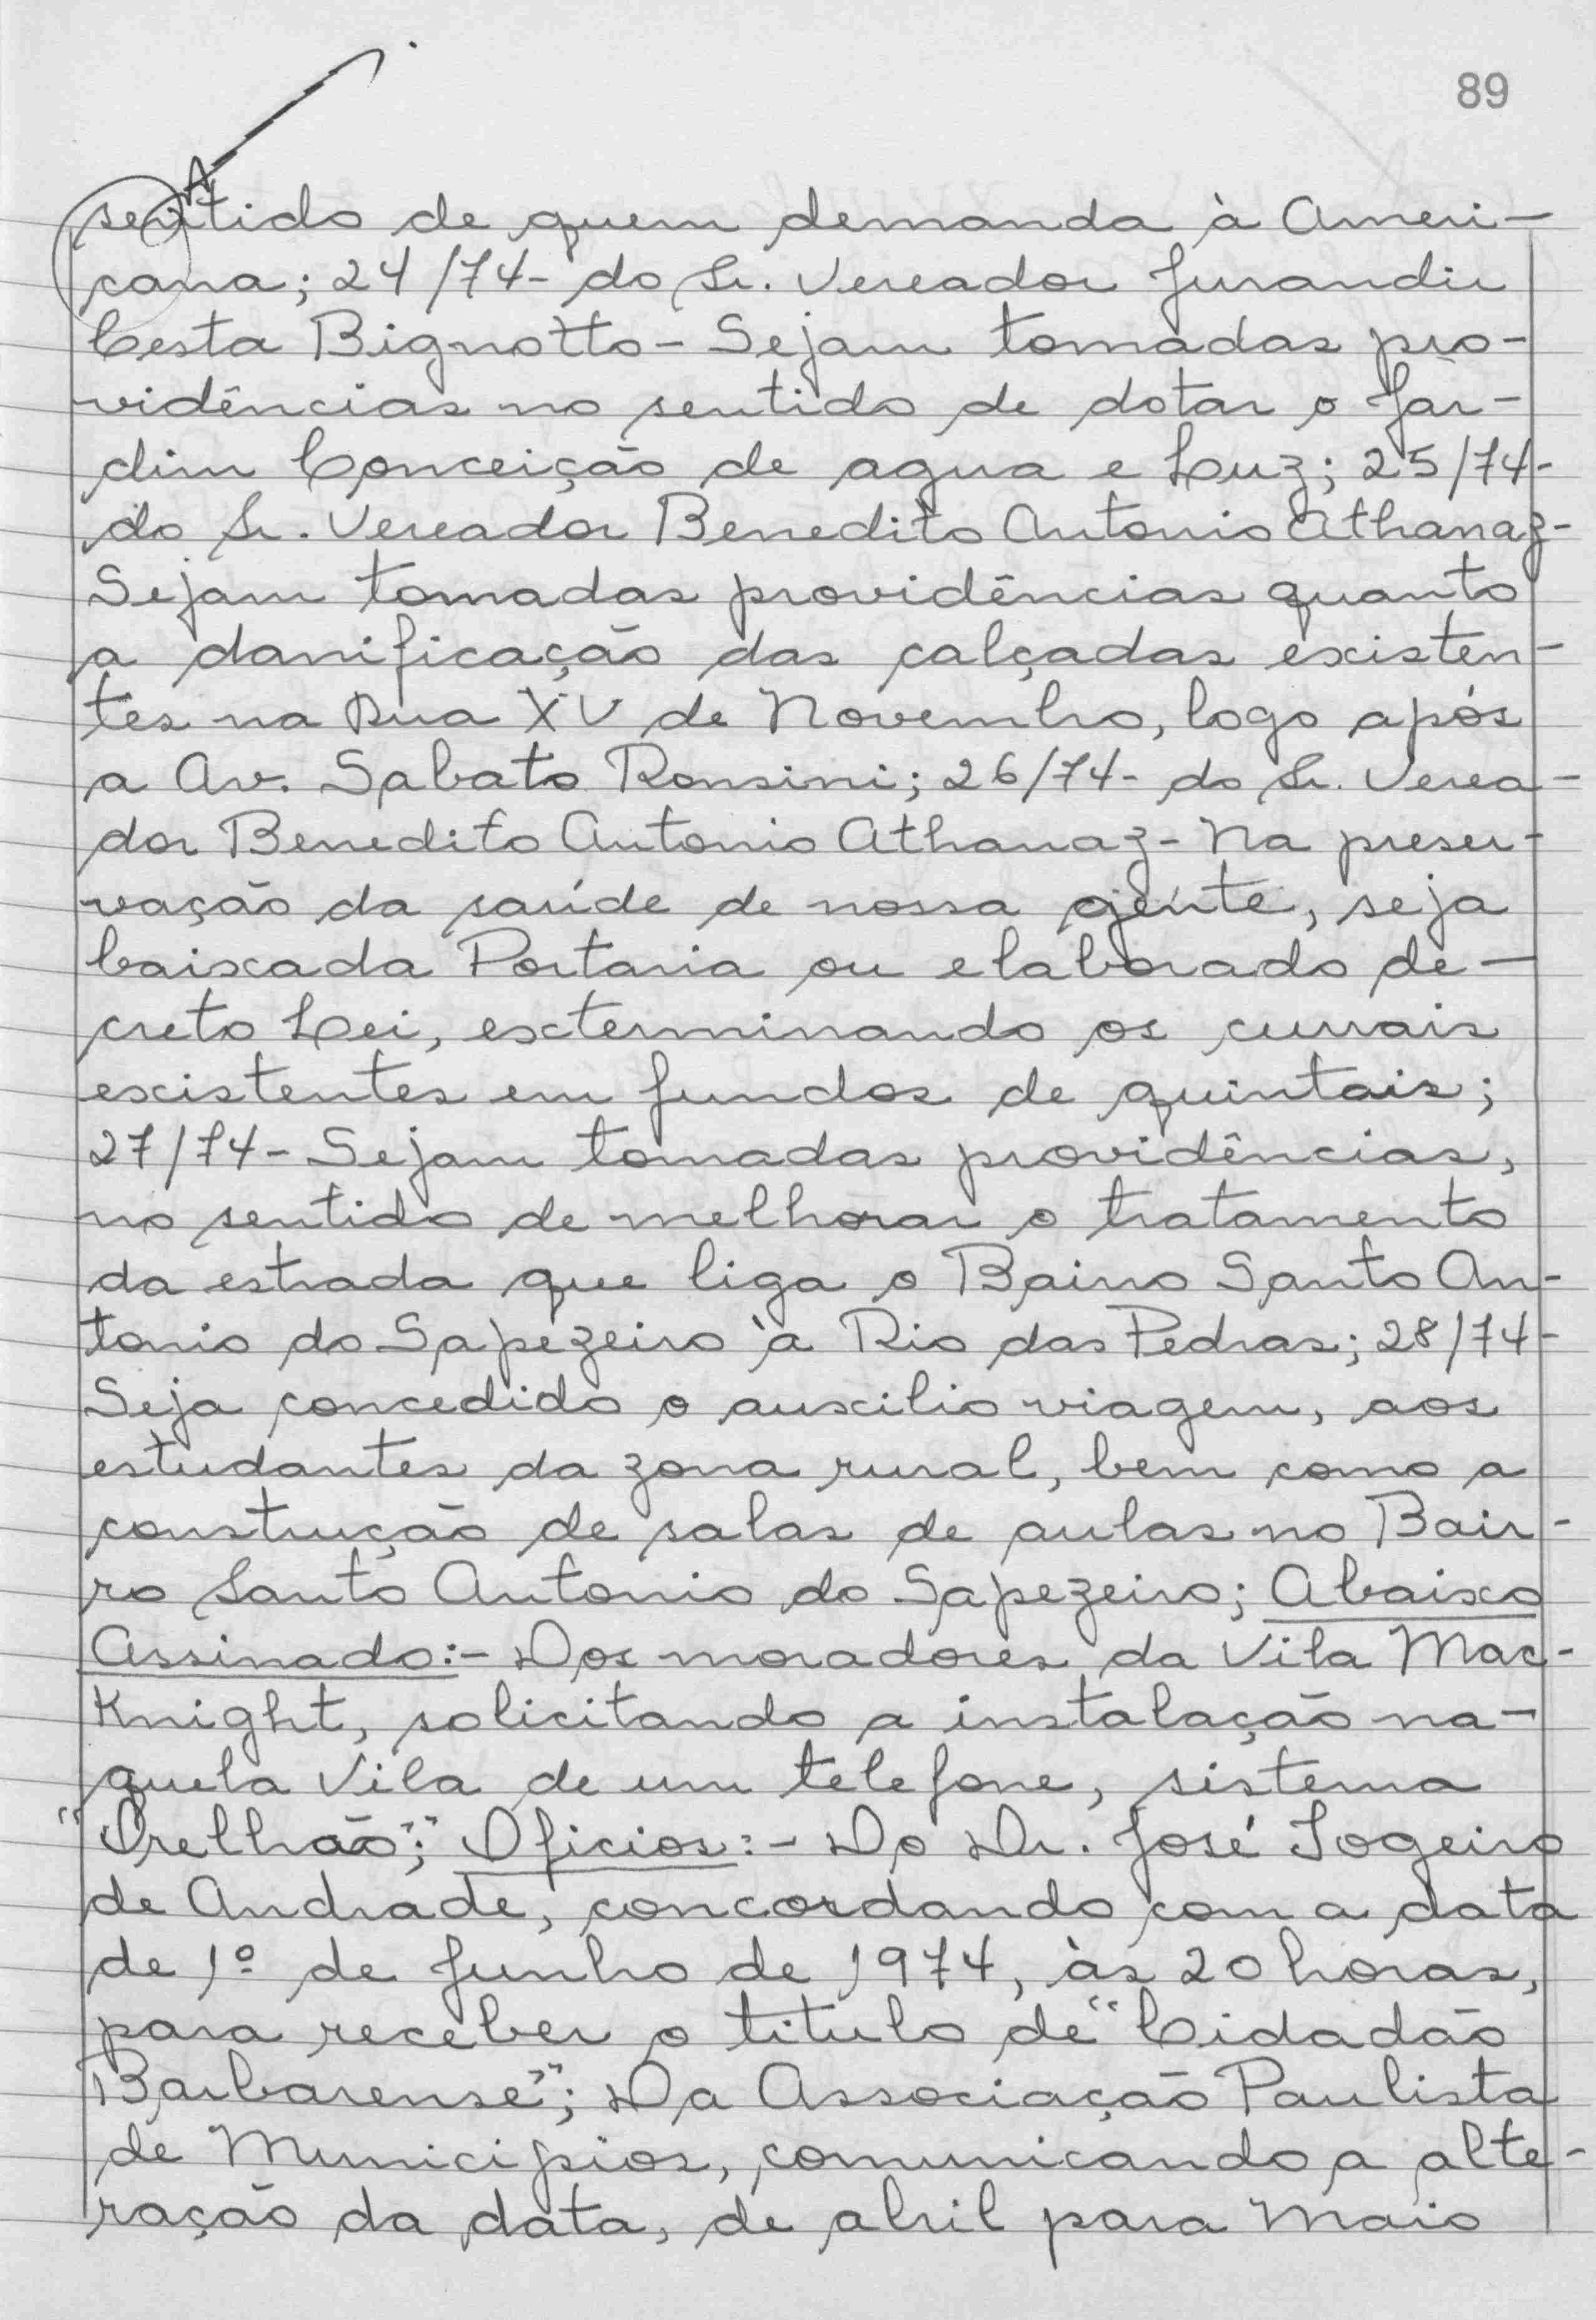 89
sentido de quem demanda à Ameri-
cana; 24/74- do Sr. Vereador Jurandir
Cesta Bignotto - Sejam tomadas pro-
vidências no sentido de dotar o Jar-
dim Conceição de agua e Luz; 25/74-
do Sr. Vereador Benedito Antonio Athanaz-
Sejam tomadas providências quanto
a danificação das calçadas existen-
tes na Rua XV de Novembro, logo após
a Av. Sabato Ronsini; 26/74- do Sr. Verea-
dor Benedito Antonio Athanaz - Na preser-
vação da saúde de nossa gente, seja
baixada Portaria ou elaborado de-
creto Lei, exterminando os currais
existentes em fundos de quintais;
27/74 - Sejam tomadas providências,
no sentido de melhorar o tratamento
da estrada que liga o Bairro Santo An-
tonio do Sapezeiro à Rio das Pedras; 28/74-
Seja concedido o auxilio viagem, aos
estudantes da zona rural, bem como a
construção de salas de aulas no Bair-
ro Santo Antonio do Sapezeiro; Abaixo
Assinado:- Dos moradores da Vila Mac-
Knight, solicitando a instalação na-
quela Vila de um telefone, sistema
"Orelhão"; Oficios:- Do Dr. José Jogeiro
de Andrade, concordando com a data
de 1º de Junho de 1974, às 20 horas,
para receber o titulo de "Cidadão
Barbarense"; Da Associação Paulista
de Municipios, comunicando a alte-
ração da data, de abril para Maio